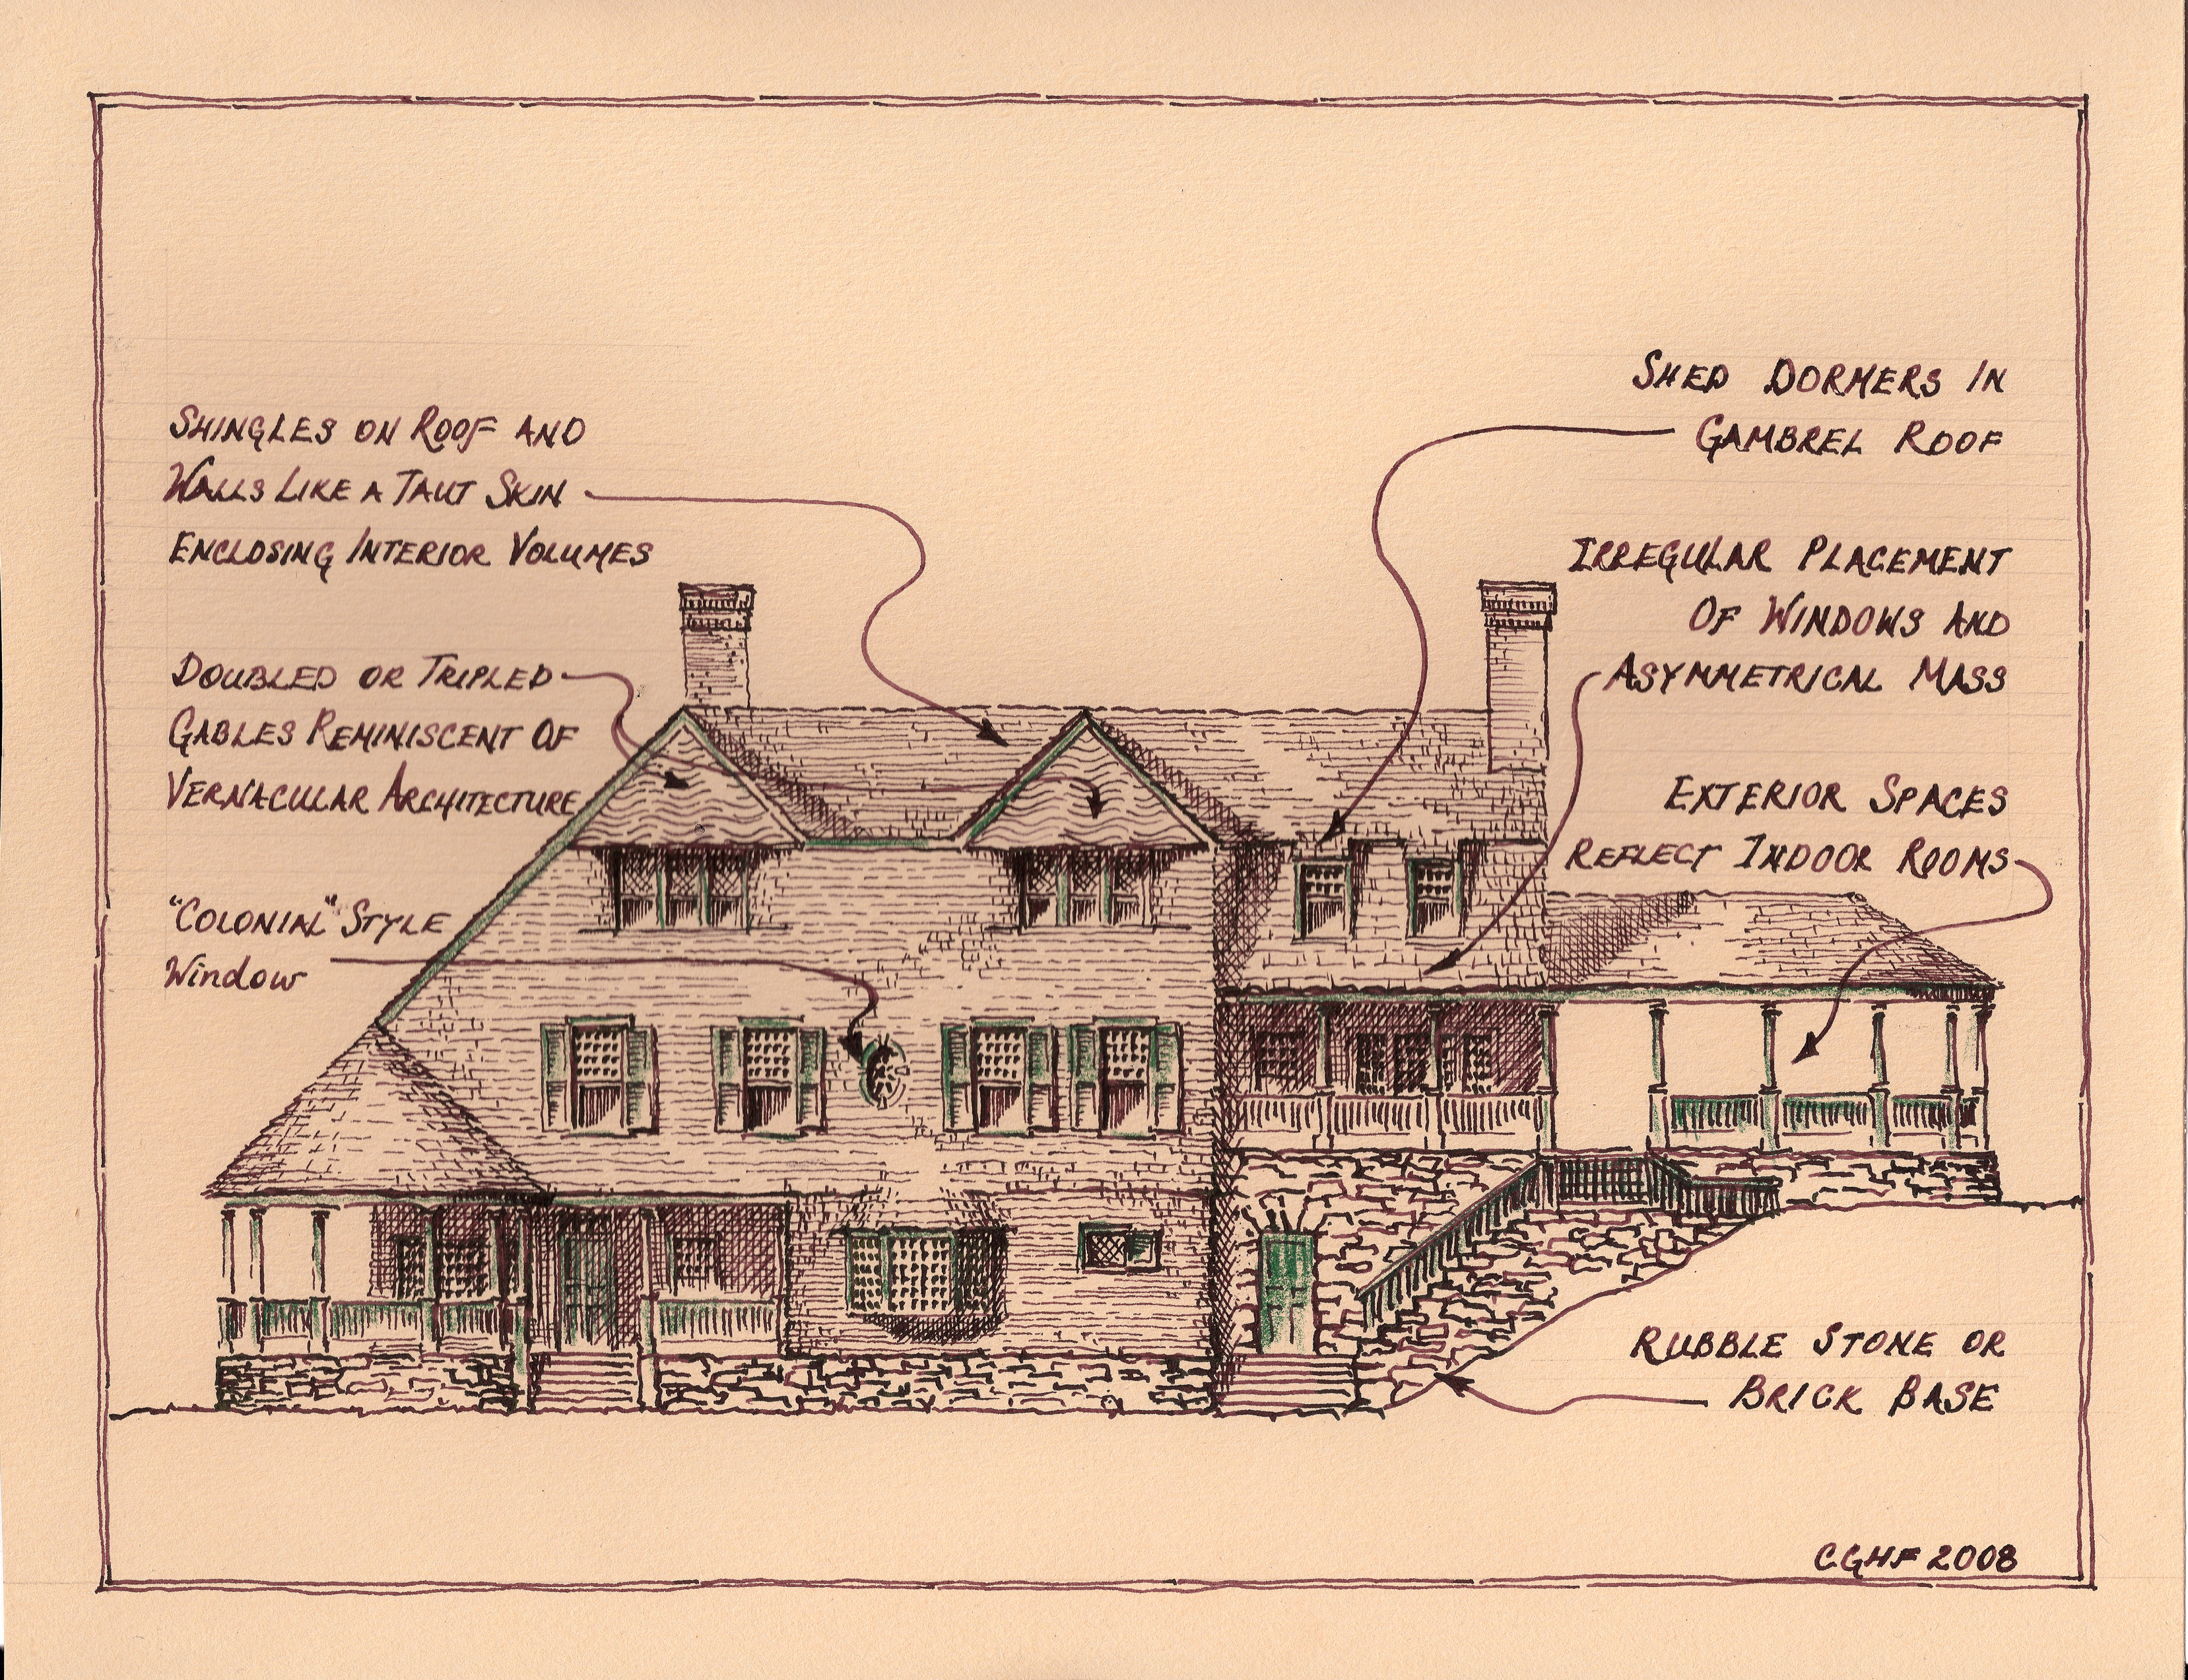 SHINGLES ON ROOF AND
WALLS LIKE A TAUT SKIN
ENCLOSING INTERIOR VOLUMES
DOUBLED OR TRIPLED
GABLES REMINISCENT OF
VERNACULAR ARCHITECTURE
"COLONIAL" STYLE
Window
SHED DORMERS IN
GAMBREL ROOF
IRREGULAR PLACEMENT
OF WINDOWS AND
ASYMMETRICAL MASS
EXTERIOR SPACES
REFLECT INDOOR ROOMS
RUBBLE STONE OR
BRICK BASE
CGHF 2008